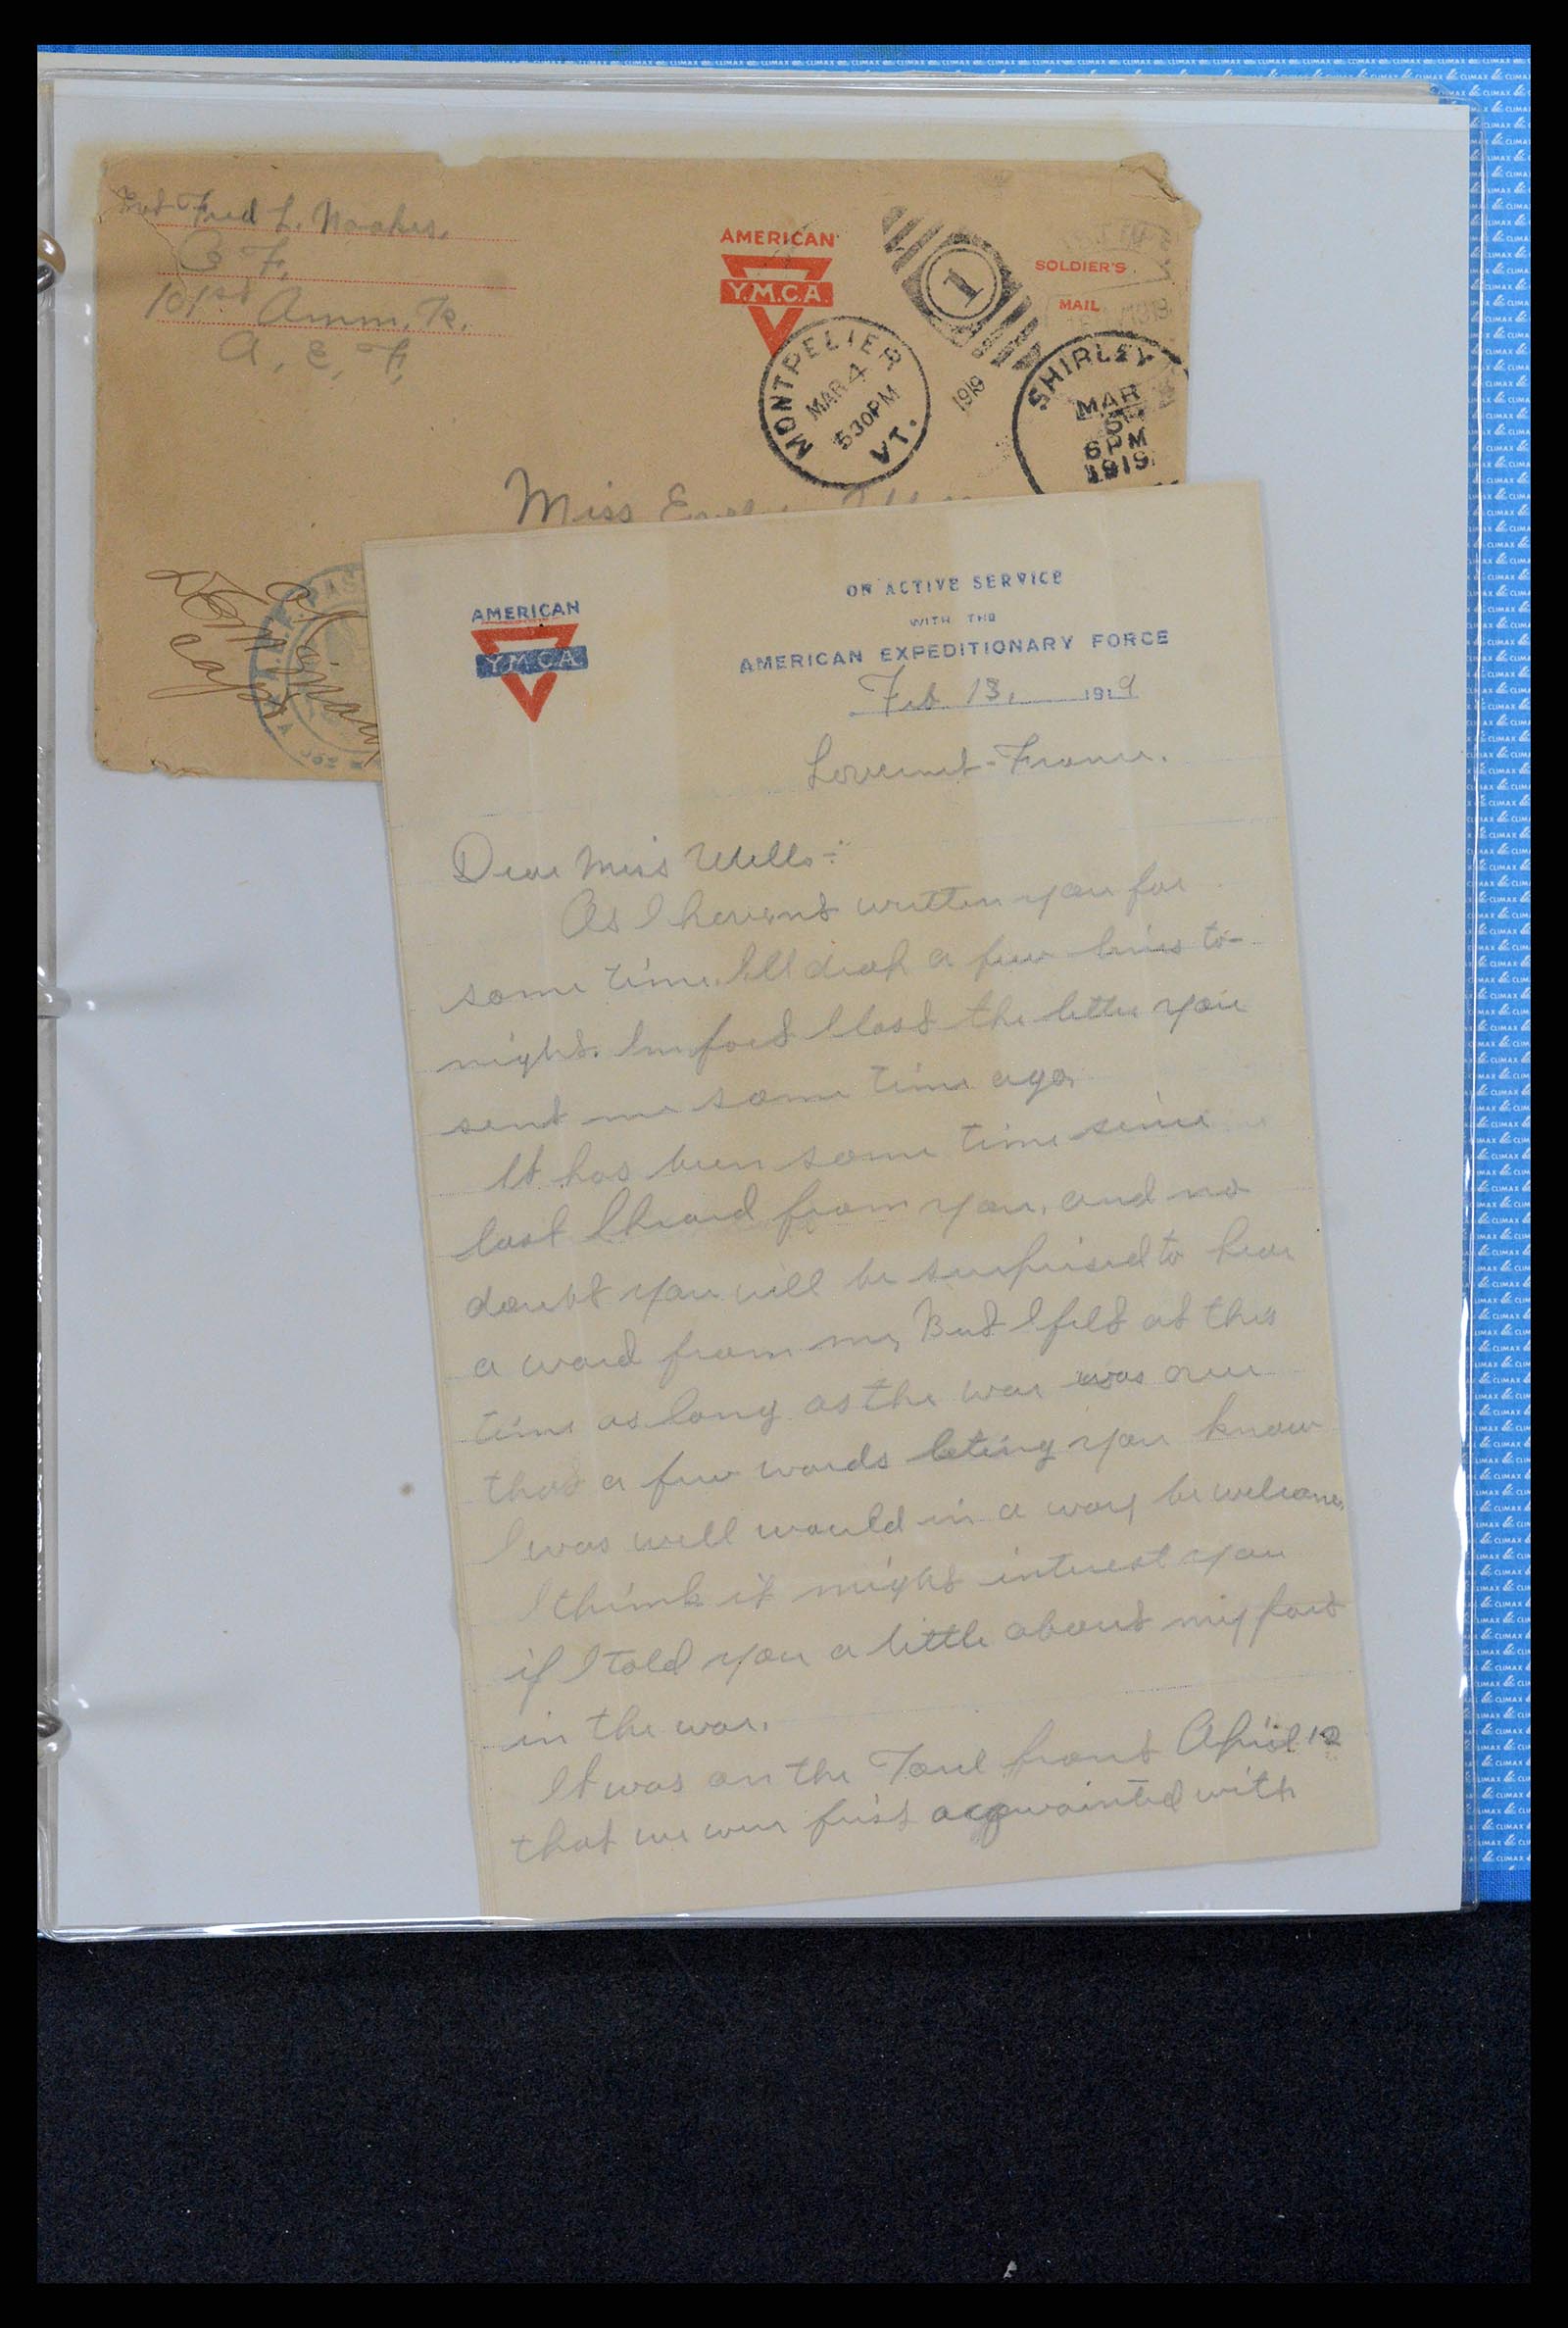 Fred L.
Co F,
101st Amm. Tr.
A. E. F.
AMERICAN
Y.M.C.A.
SOLDIER'S
MAIL
1
MONTPELIER
MAR 4
530PM
VT.
1919
SHIRLEY
MAR
5
6PM
1919
Miss
OK
Capt
AMERICAN
Y.M.C.A.
ON ACTIVE SERVICE
WITH THE
AMERICAN EXPEDITIONARY FORCE
Feb. 13, 1919
France.
Dear Miss Wells:-
As I havent written you for
some time. I'll drop a few lines to-
night. In fact I lost the letter you
sent me some time ago.
It has been some time since
last I heard from you, and no
doubt you will be surprised to hear
a word from me, But I felt at this
time as long as the war was over
that a few words leting you know
I was well would in a way be welcome.
I think it might interest you
if I told you a little about my part
in the war.
It was on the Toul front April 12
that we were first acqwainted with
CLIMAX